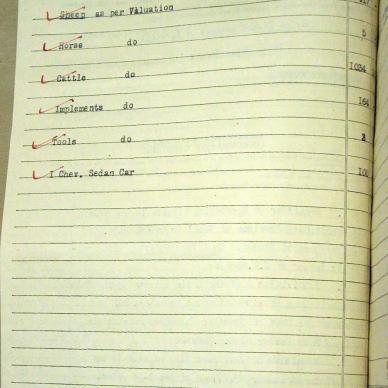 Sheep as per Valuation
Horse do 5
Cattle do 1034
Implements do 164
Tools do
I Chev. Sedan Car